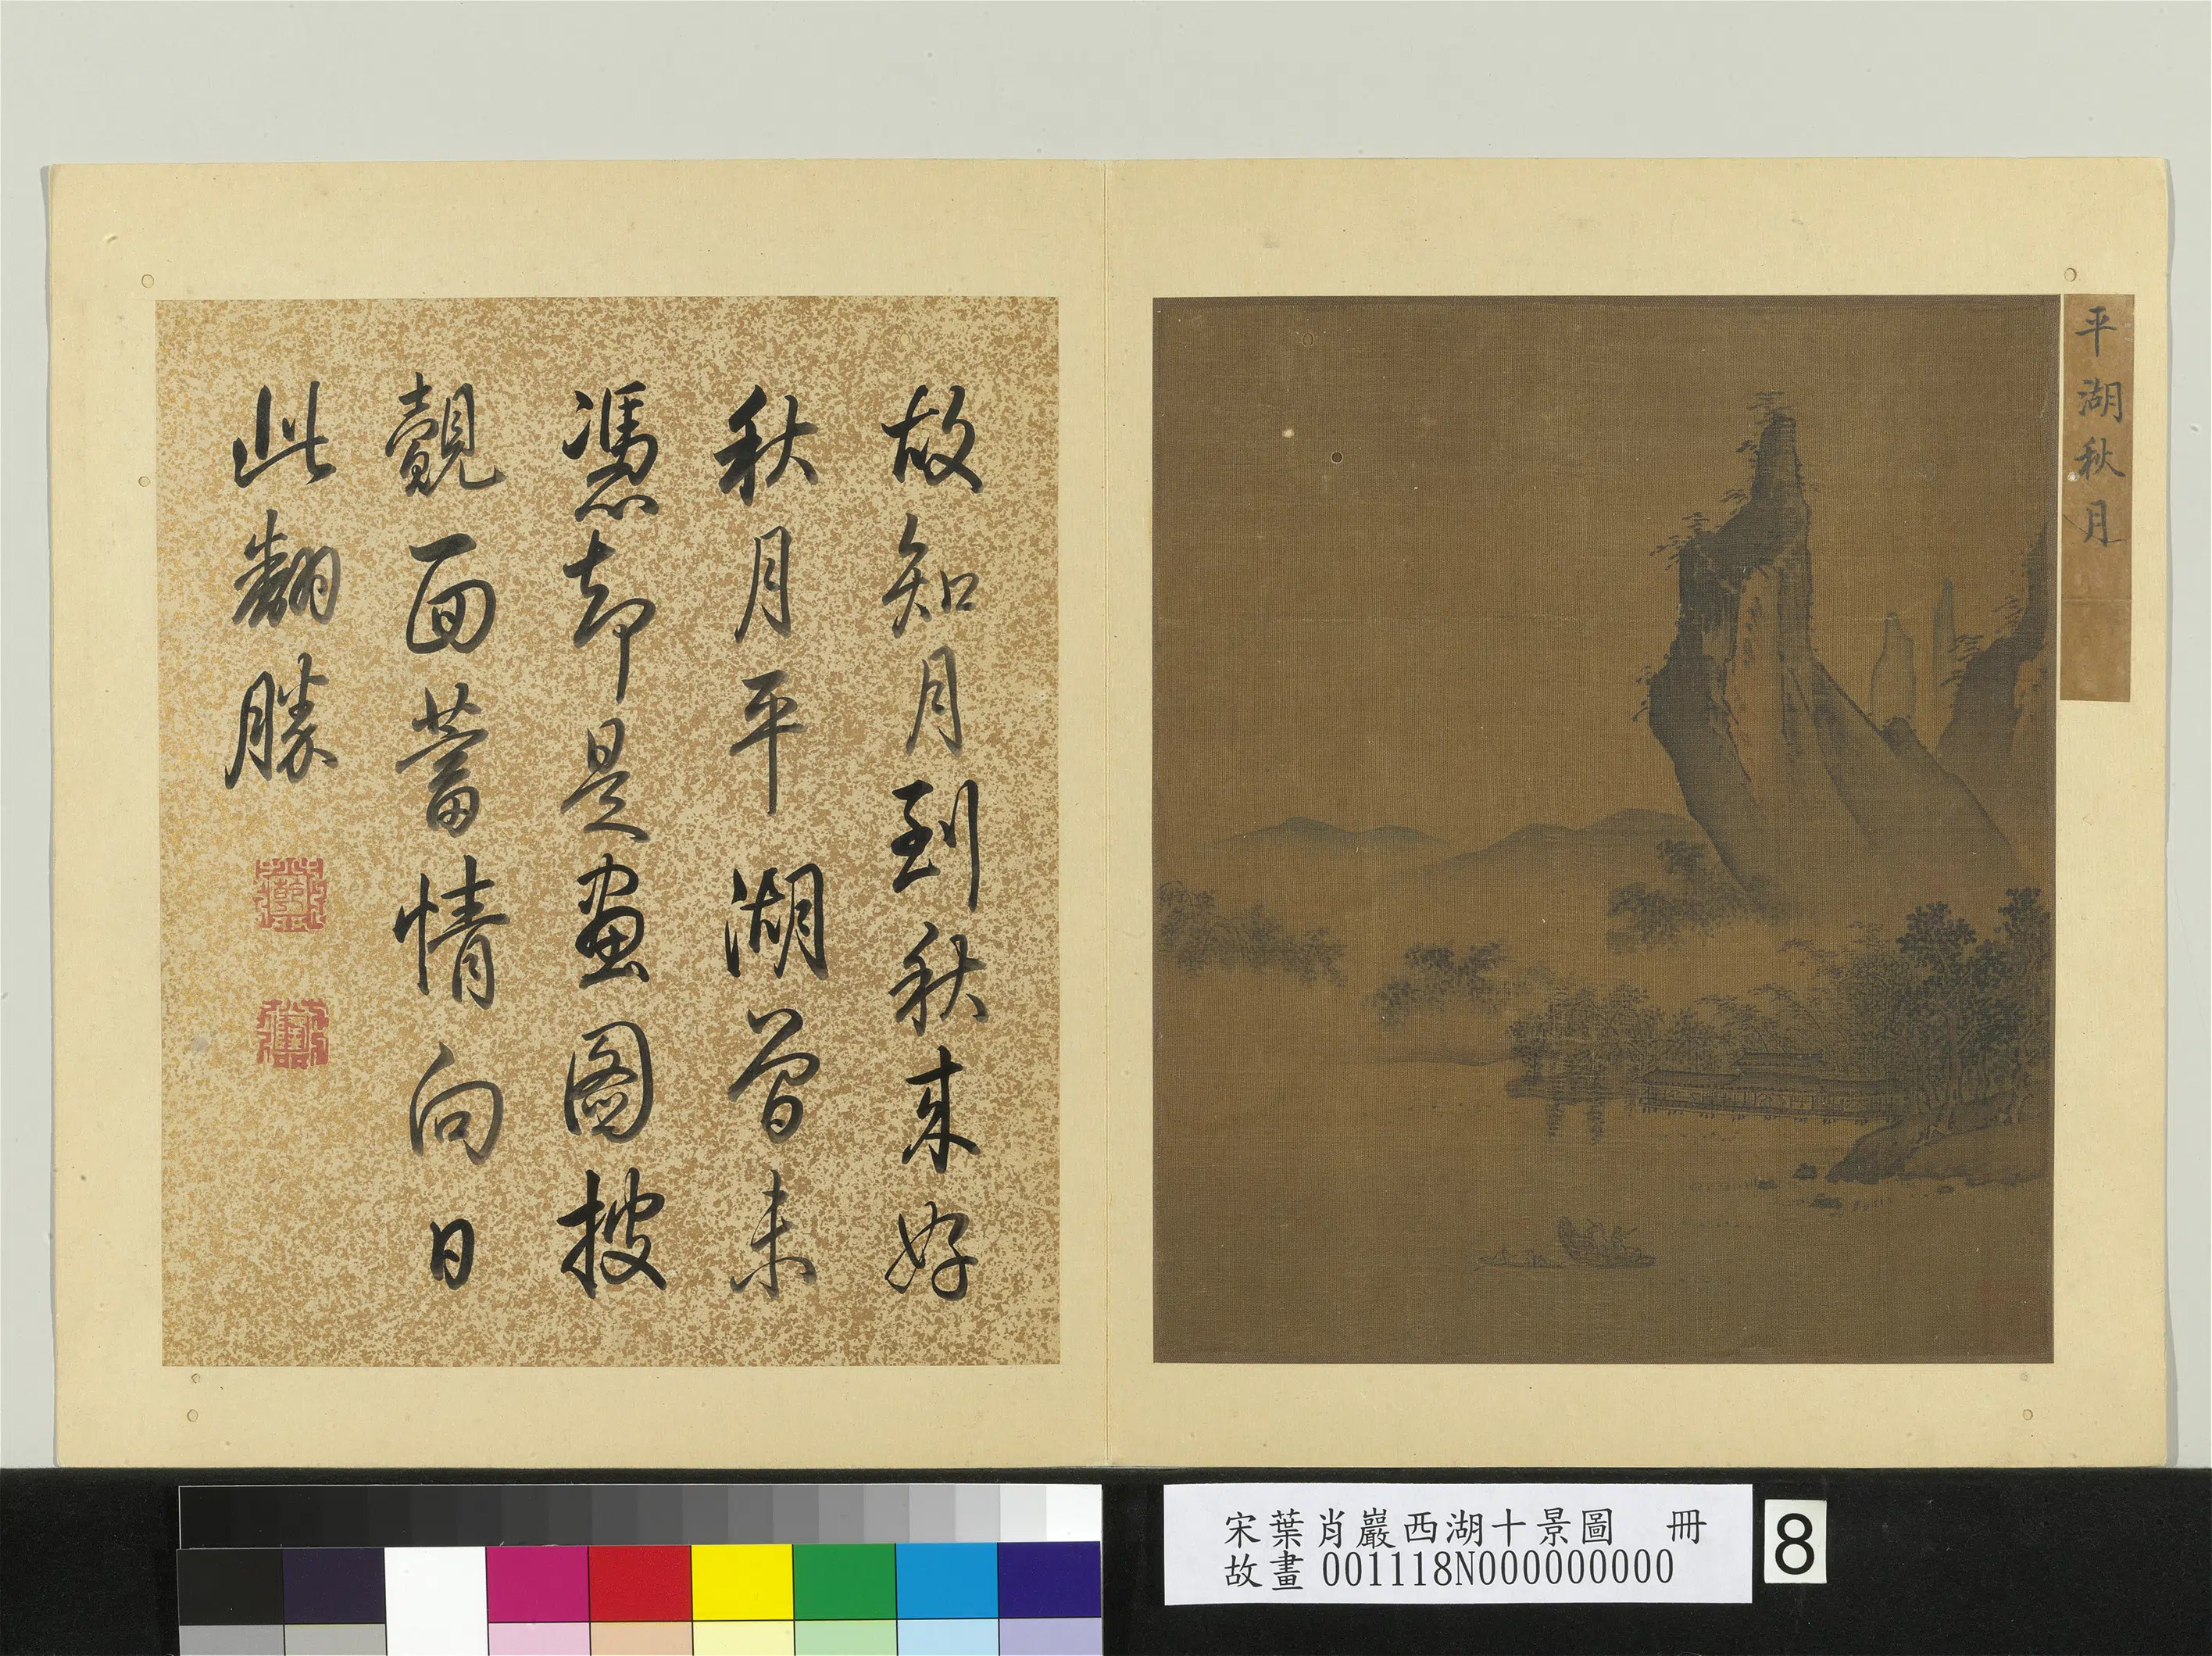 平湖秋月
故知月到秋来好
秋月平湖曾未
憑却是畫圖披
覿面蓄情向日
此翻勝
宋葉肖巖西湖十景圖 冊
故畫 001118N000000000
8